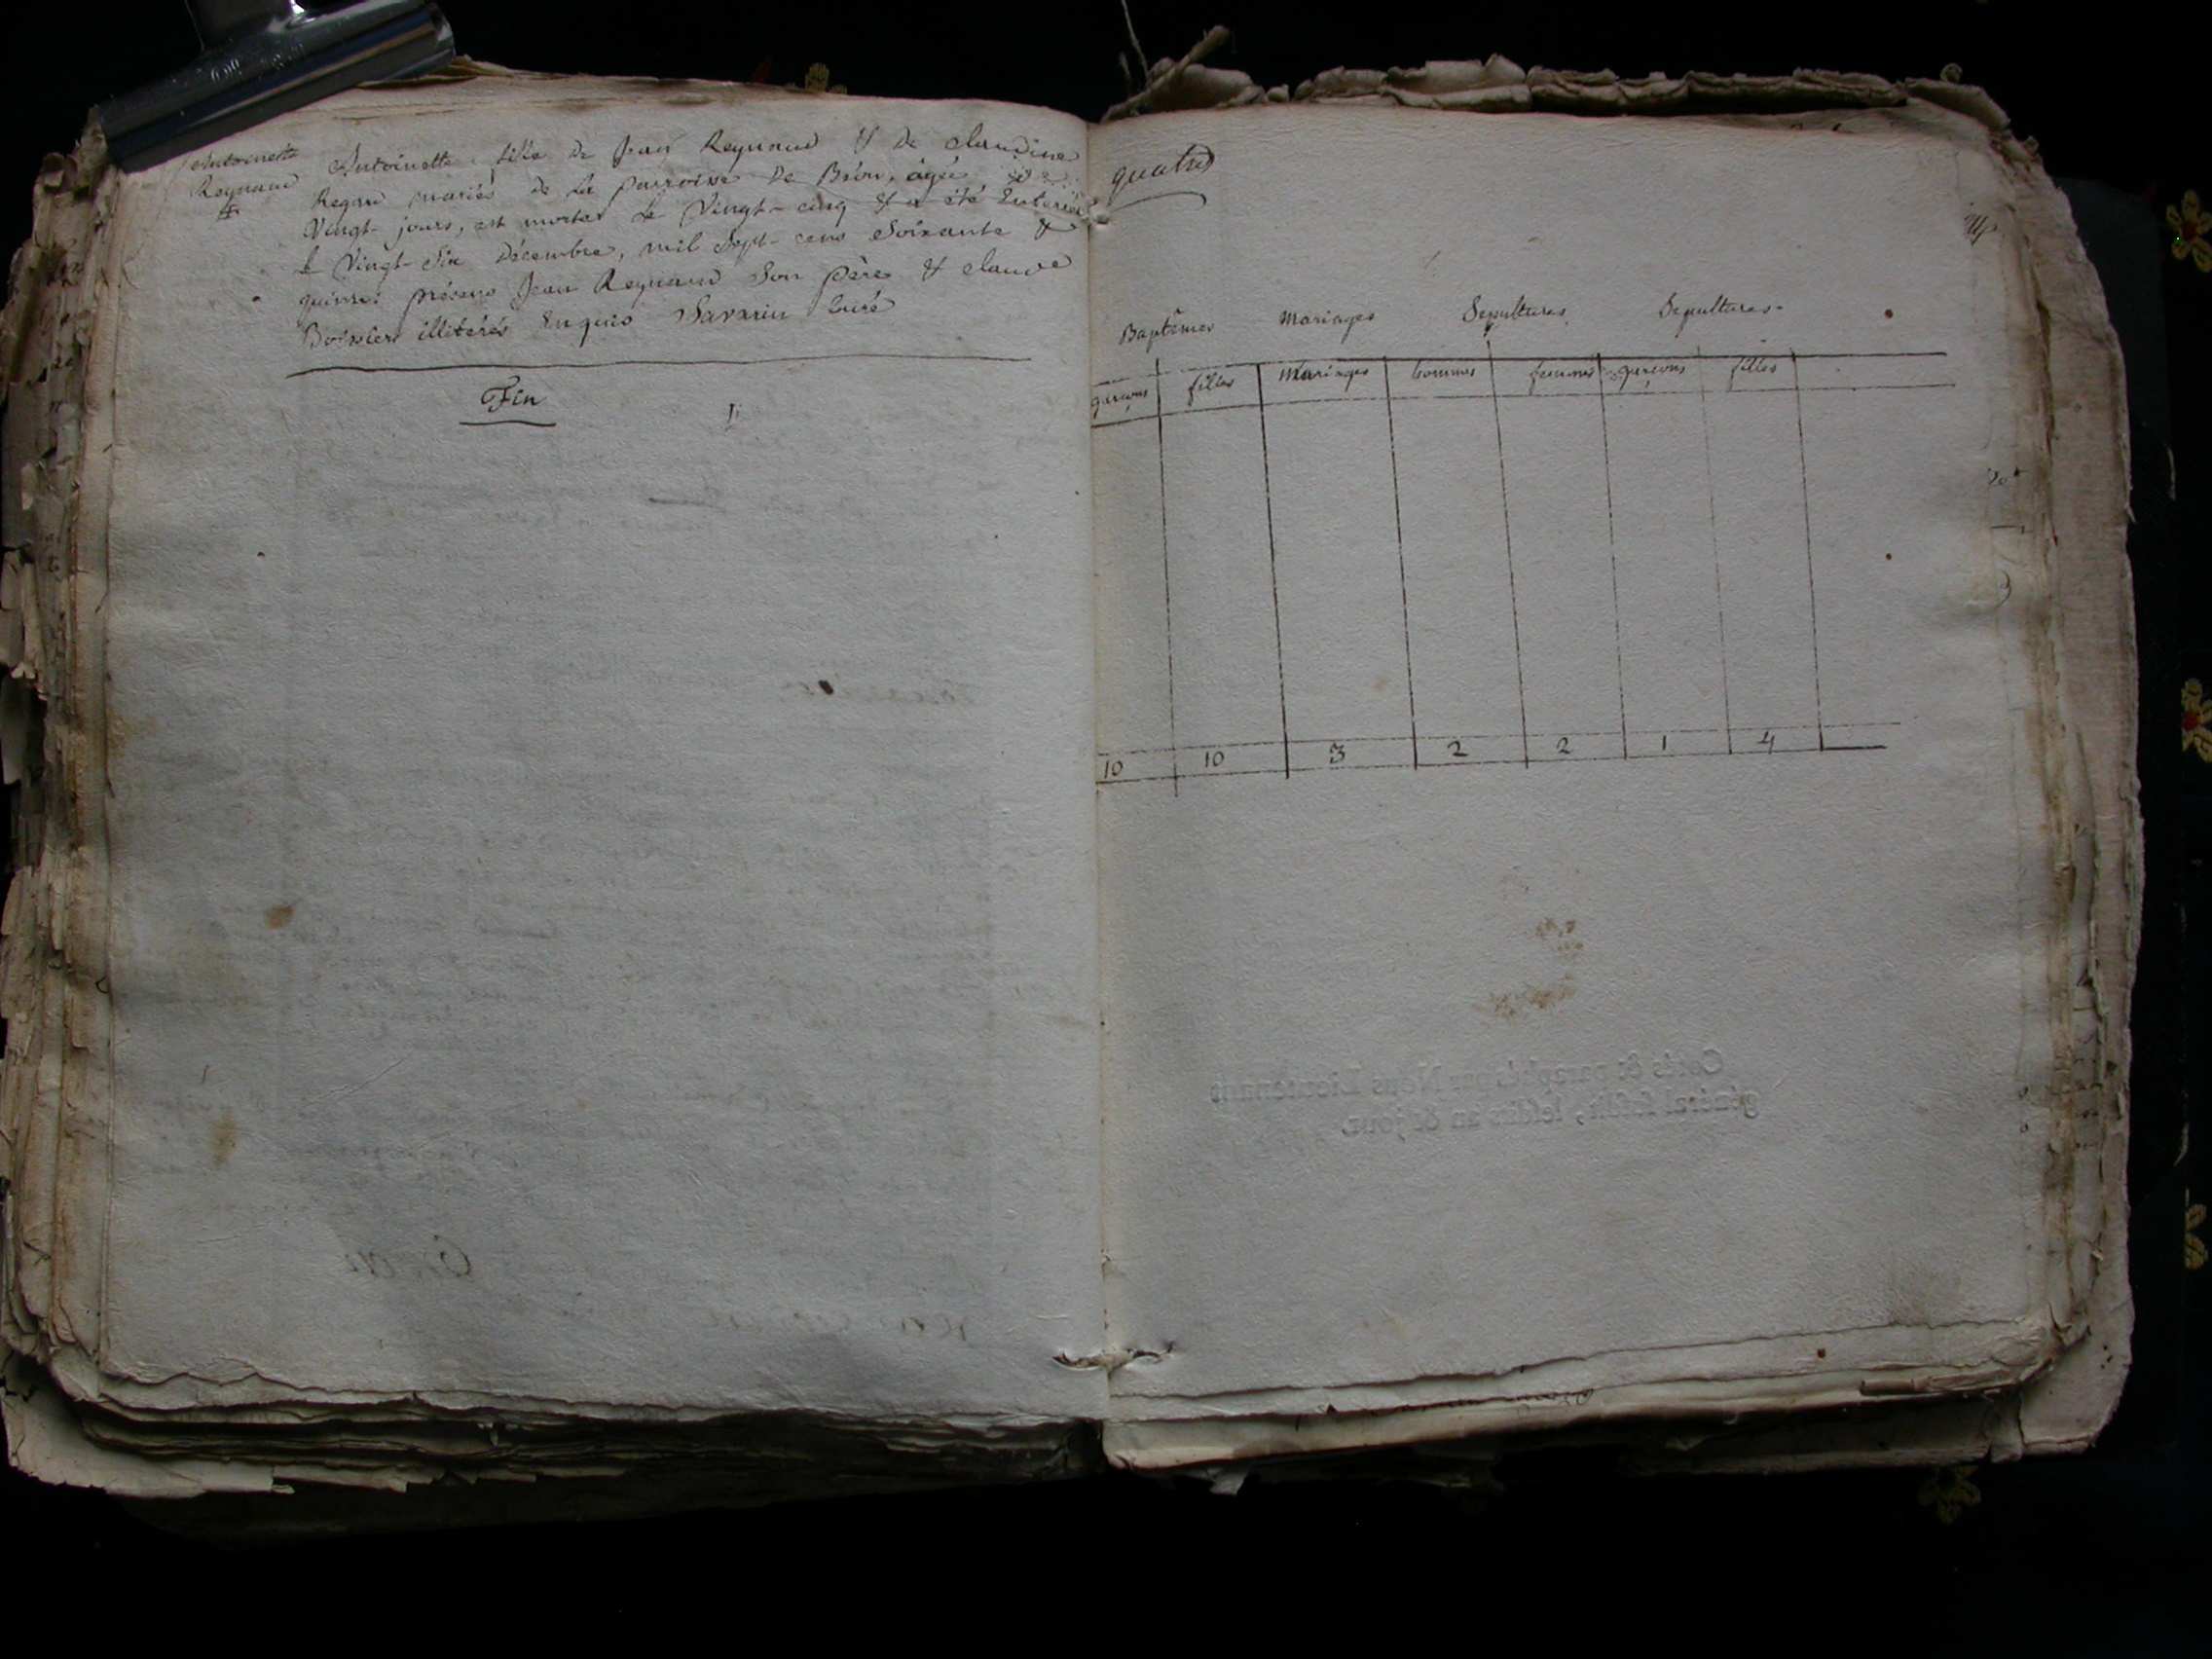 Antoinette
Reynaud
Antoinette fille de Jean Reynaud & de claudine
Regau mariés de la parroisse de Béon, agée de
Vingt-jours, est morte le Vingt-cinq & a été Enterrée
le Vingt-Six Décembre, mil Sept-cens Soixante &
quinze: présens Jean Reynaud Son père & claude
Boissier illiterés Enquis Savarin Curé
Fin
quatre
Baptêmes Mariages Sepultures Sepultures
garçons filles Mariages hommes femmes garçons filles
10 10 3 2 2 1 4
Cotés & paraphé, par Nous Lieutenant
général susdit, lesdits an & jour.